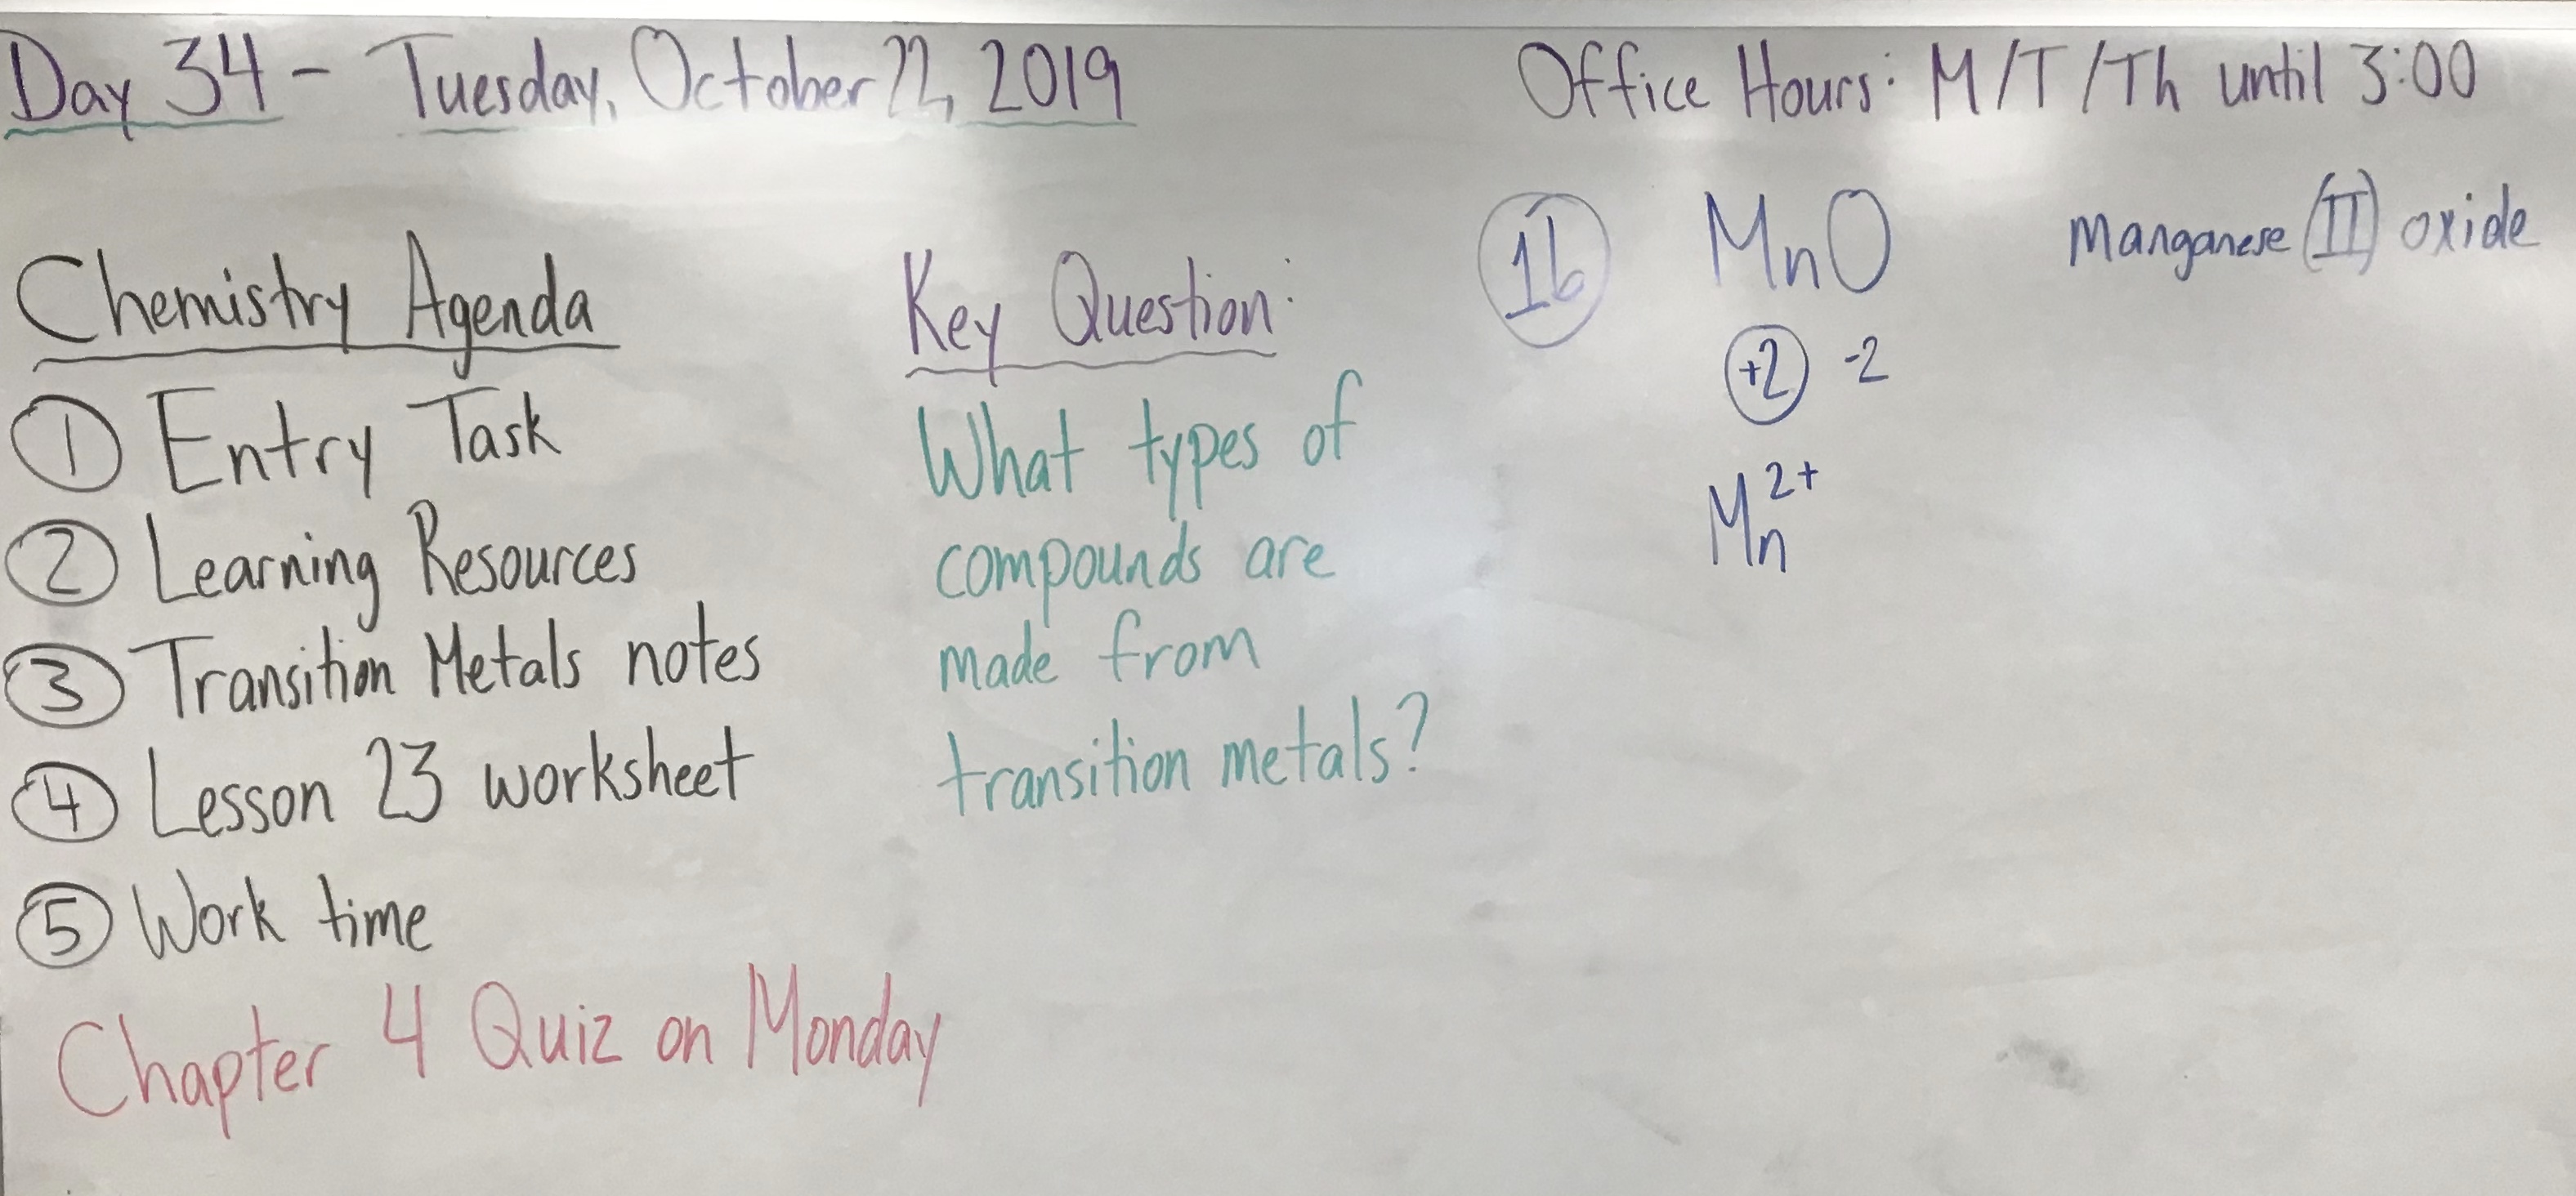 Day 34 - Tuesday, October 22, 2019
Office Hours: M/T/Th until 3:00
Chemistry Agenda
① Entry Task
② Learning Resources
③ Transition Metals notes
④ Lesson 23 worksheet
⑤ Work time
Chapter 4 Quiz on Monday
Key Question:
What types of
compounds are
made from
transition metals?
1b MnO Manganese (II) oxide
+2 -2
Mn²⁺